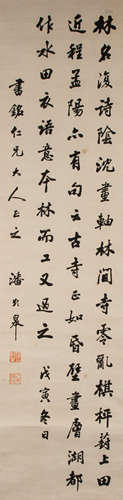 林君復詩陰沈畫軸林間寺零亂棋枰葑上田
近程孟陽六有句云古寺正如昏壁畫層湖都
作水田衣語意本林而工又過之　戊寅冬日
書銘仁兄大人正之　潘齡皋